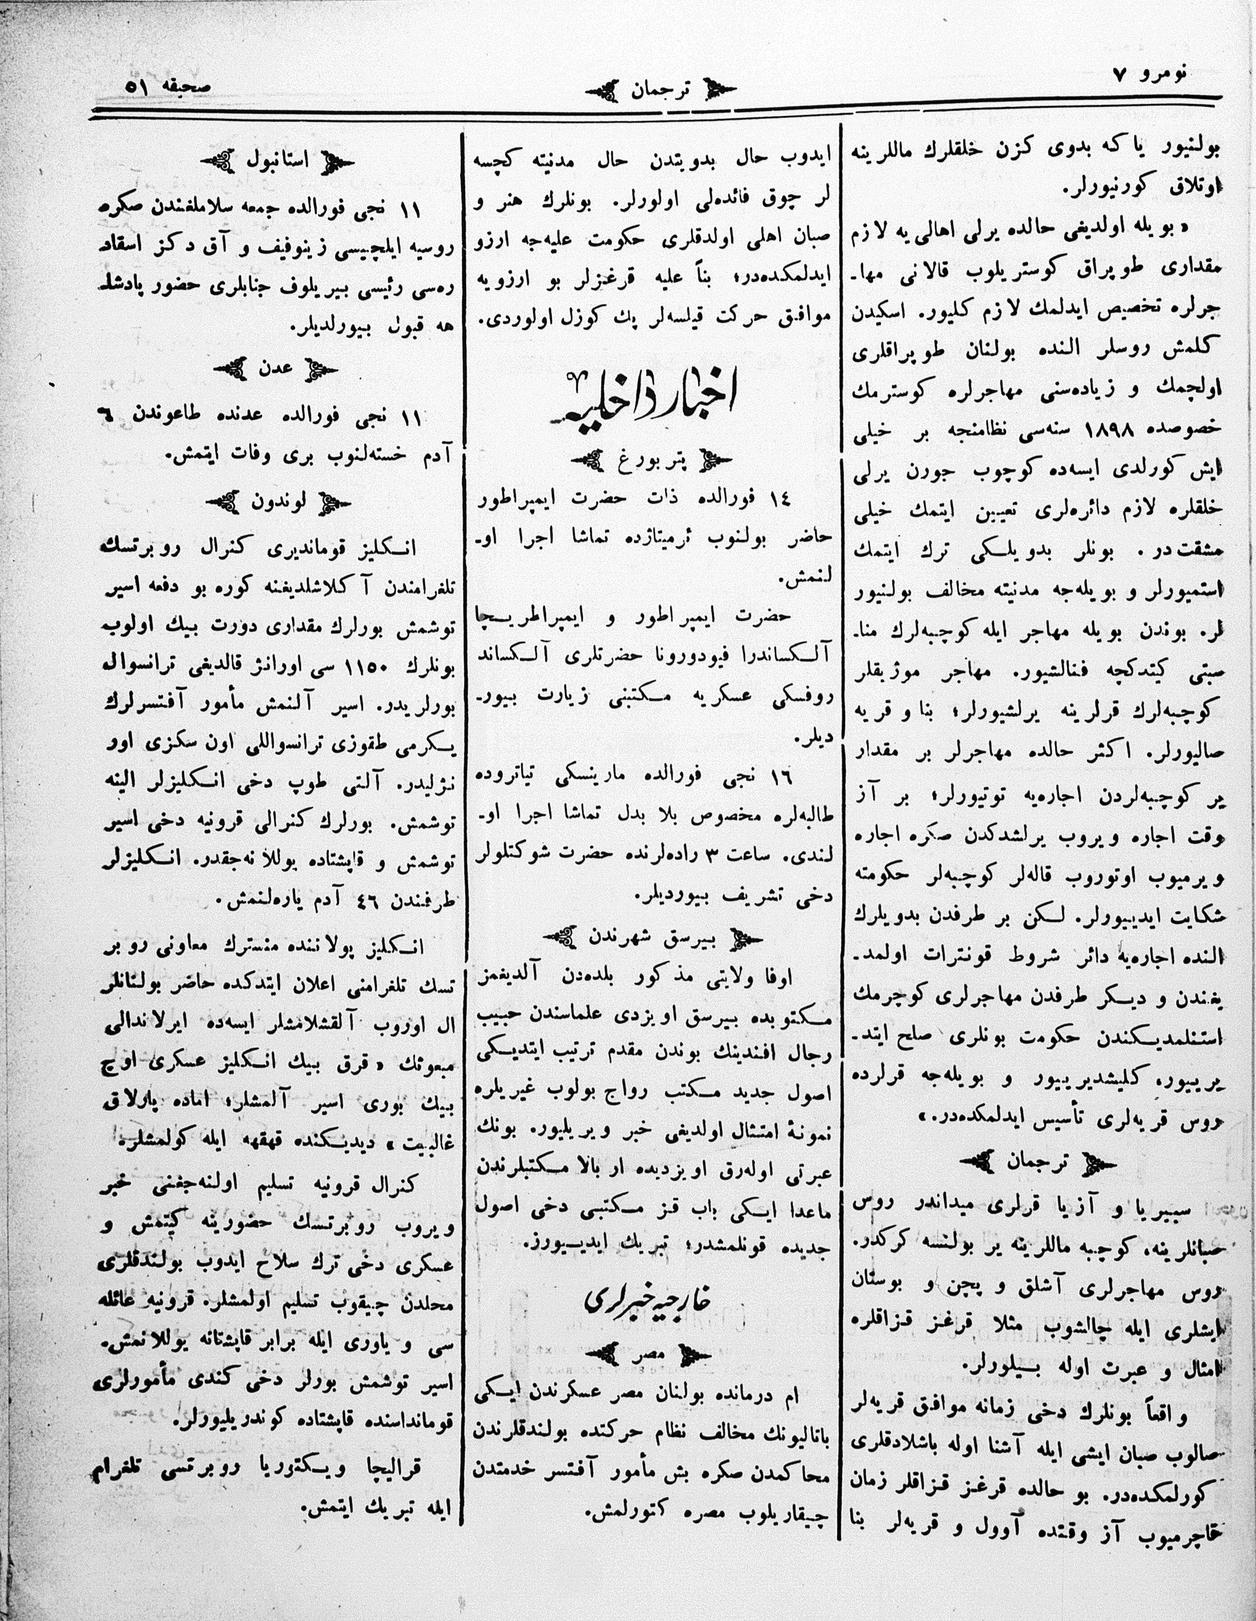 نومرو ٧
ترجمان
صحیفه ٥١
بولنیور یاکه بدوی کزن خلقلرك ماللرینه
اوتلاق کورنیورلر.
« بویله اولدیغی حالده یرلی اهالی یه لازم
مقداری طوپراق کوستریلوب قالانی مها-
جرلره تخصیص ایدلمك لازم کلیور. اسکیدن
کلمش روسلر النده بولنان طوپراقلری
اولچمك و زیاده‌سنی مهاجرلره کوسترمك
خصوصده ١٨٩٨ سنه‌سی نظامنجه بر خیلی
ایش کورلدی ایسه‌ده کوچوب جورن یرلی
خلقلره لازم دائره‌لری تعیین ایتمك خیلی
مشقت در . بونلر بدویلکی ترك ایتمك
استمیورلر و بویله‌جه مدنیته مخالف بولنیور
لر. بوندن بویله مهاجر ایله کوچبه‌لرك منا-
سبتی کیتدکچه فنالشیور. مهاجر موژیقلر
کوچبه‌لرك قرلرینه یرلشیورلر؛ بنا و قریه
صالیورلر. اکثر حالده مهاجرلر بر مقدار
یر کوچبه‌لردن اجاره‌یه توتیورلر؛ بر آز
وقت اجاره ویروب یرلشدکدن صکره اجاره
ویرمیوب اوتوروب قاله‌لر کوچبه‌لر حکومته
شکایت ایدییورلر. لکن بر طرفدن بدویلرك
النده اجاره‌یه دائر شروط قونترات اولمد-
یغندن و دیکر طرفدن مهاجرلری کوچرمك
استنلمدیکندن حکومت بونلری صلح ایتد-
یرییور، کلیشدیرییور و بویله‌جه قرلرده
روس قریه‌لری تأسیس ایدلمکده‌در.»
ترجمان
سیبریا و آزیا قرلری میداندر روس
صبانلرینه، کوچبه ماللرینه یر بولنسه کرکدر.
روس مهاجرلری آشلق و پچن و بوستان
ایشلری ایله چالشوب مثلا قرغز قزاقلره
امثال و عبرت اوله بیلورلر.
واقعاً بونلرك دخی زمانه موافق قریه‌لر
صالوب صبان ایشی ایله آشنا اوله باشلادقلری
کورلمکده‌در. بو حالده قرغز قزاقلر زمان
قاچرمیوب آز وقتده آوول و قریه‌لر بنا
ایدوب حال بدویتدن حال مدنیته کچسه
لر چوق فائده‌لی اولورلر. بونلرك هنر و
صبان اهلی اولدقلری حکومت علیه‌جه ارزو
ایدلمکده‌در؛ بناً علیه قرغزلر بو ارزویه
موافق حرکت قیلسه‌لر پك کوزل اولوردی.
اخبار داخلیه
پتربورغ
١٤ فورالده ذات حضرت ایمپراطور
حاضر بولنوب ئرمیتاژده تماشا اجرا او-
لنمش.
حضرت ایمپراطور و ایمپراطریچا
آلکساندرا فیودورونا حضرتلری آلکساند
روفسکی عسکریه مکتبنی زیارت بیور-
دیلر.
١٦ نجی فورالده مارینسکی تیاتروده
طالبه‌لره مخصوص بلا بدل تماشا اجرا او-
لندی. ساعت ٣ راده‌لرنده حضرت شوکتلولر
دخی تشریف بیوردیلر.
بیرسق شهرندن
اوفا ولایتی مذکور بلده‌دن آلدیغمز
مکتوبده بیرسق اویزدی علماسندن حبیب
رجال افندینك بوندن مقدم ترتیب ایتدیکی
اصول جدید مکتب رواج بولوب غیریلره
نمونهٔ امتثال اولدیغی خبر ویریلیور. بونك
عبرتی اوله‌رق اویزدیده ار بالا مکتبلرندن
ماعدا ایکی باب قز مکتبی دخی اصول
جدیده قونلمشدر؛ تبریك ایدییورز.
خارجیه خبرلری
مصر
ام درمانده بولنان مصر عسکرندن ایکی
باتالیونك مخالف نظام حرکتده بولندقلرندن
محاکمدن صکره بش مأمور آفتسر خدمتدن
چیقاریلوب مصره کتورلمش.
استانبول
١١ نجی فورالده جمعه سلاملغندن صکره
روسیه ایلچیسی زینوفیف و آق دکز اسقاد
ره‌سی رئیسی بیریلوف جنابلری حضور پادشا-
هه قبول بیورلدیلر.
عدن
١١ نجی فورالده عدنده طاعوندن ٦
آدم خسته‌لنوب بری وفات ایتمش.
لوندون
انکلیز قوماندیری کنرال روبرتسك
تلغرامندن آکلاشلدیغنه کوره بو دفعه اسیر
توشمش بورلرك مقداری دورت بیك اولوب
بونلرك ١١٥٠ سی اورانژ قالدیغی ترانسوال
بورلریدر. اسیر آلنمش مأمور آفتسرلرك
یکرمی طقوزی ترانسواللی اون سکزی اور
نژلیدر. آلتی طوپ دخی انکلیزلر الینه
توشمش. بورلرك کنرالی قرونیه دخی اسیر
توشمش و قاپشتاده یوللانه‌جقدر. انکلیزلر
طرفندن ٤٦ آدم یاره‌لنمش.
انکلیز پولاننده منسترك معاونی روبر
تسك تلغرامنی اعلان ایتدکده حاضر بولنانلر
ال اوروب آلقشلامشلر ایسه‌ده ایرلاندالی
مبعوثك « قرق بیك انکلیز عسکری اوچ
بیك بوری اسیر آلمشلر؛ اماده پارلاق
غالبیت » دیدیکنده قهقهه ایله کولمشلر.
کنرال قرونیه تسلیم اولنه‌جغنی خبر
ویروب روبرتسك حضورینه کیتمش و
عسکری دخی ترك سلاح ایدوب بولندقلری
محلدن چیقوب تسلیم اولمشلر. قرونیه عائله
سی و یاوری ایله برابر قاپشتانه یوللانمش.
اسیر توشمش بورلر دخی کندی مأمورلری
قومانداسنده قاپشتاده کوندریلیورلر.
قرالیچا ویکتوریا روبرتسی تلغرام
ایله تبریك ایتمش.